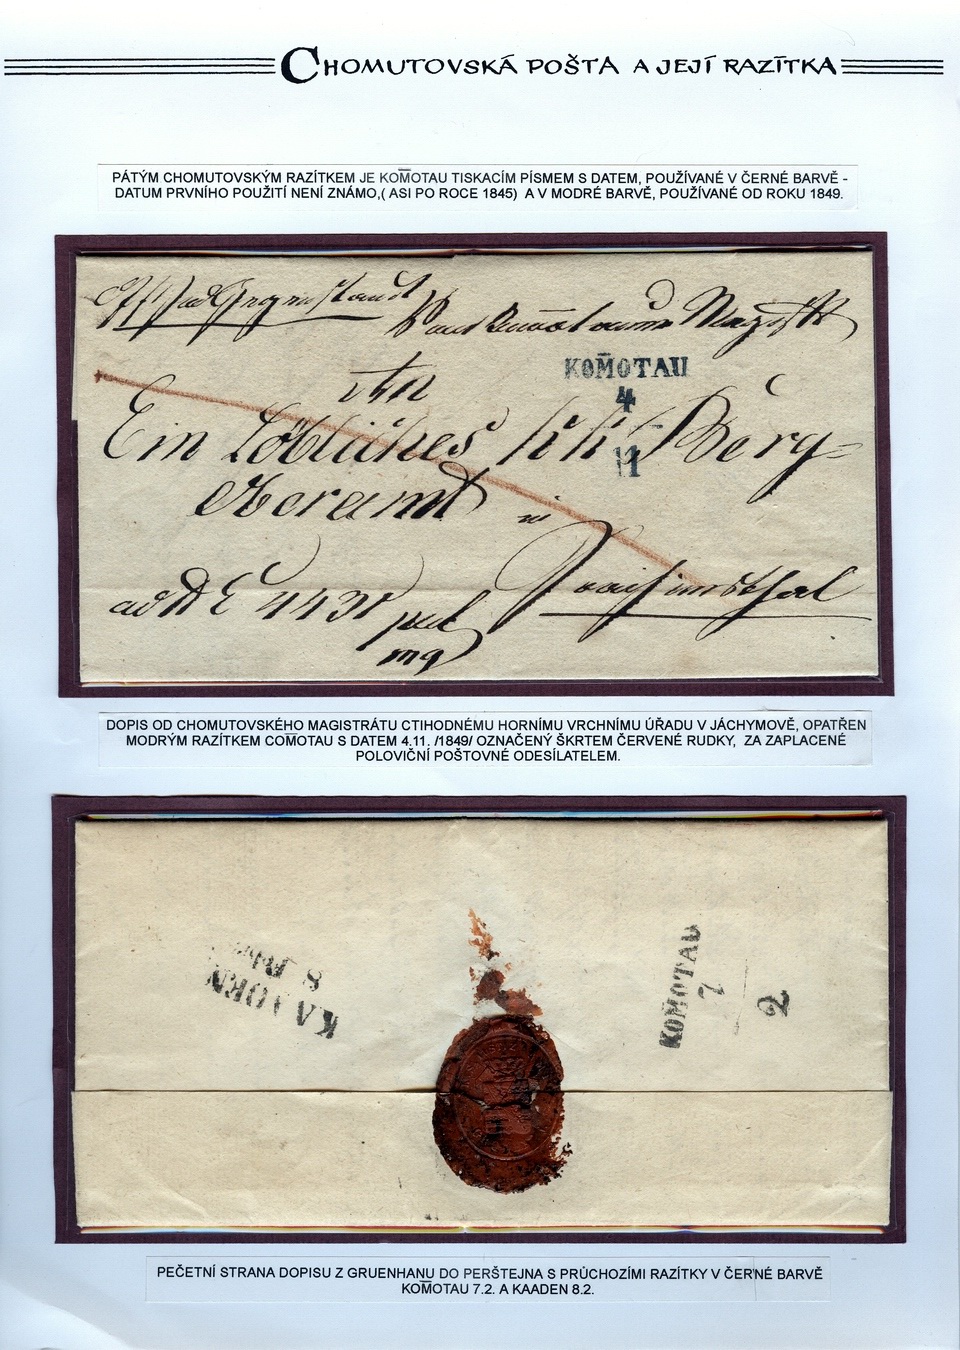 CHOMUTOVSKÁ POŠTA A JEJÍ RAZÍTKA
PÁTÝM CHOMUTOVSKÝM RAZÍTKEM JE KOM̅OTAU TISKACÍM PÍSMEM S DATEM, POUŽÍVANÉ V ČERNÉ BARVĚ -
DATUM PRVNÍHO POUŽITÍ NENÍ ZNÁMO,( ASI PO ROCE 1845) A V MODRÉ BARVĚ, POUŽÍVANÉ OD ROKU 1849.
KOM̅OTAU
4
11
An
Ein Löbliches k k Berg=
Oberamt in
Joachimsthal
DOPIS OD CHOMUTOVSKÉHO MAGISTRÁTU CTIHODNÉMU HORNÍMU VRCHNÍMU ÚŘADU V JÁCHYMOVĚ, OPATŘEN
MODRÝM RAZÍTKEM COM̅OTAU S DATEM 4.11. /1849/ OZNAČENÝ ŠKRTEM ČERVENÉ RUDKY, ZA ZAPLACENÉ
POLOVIČNÍ POŠTOVNÉ ODESÍLATELEM.
KAADEN
8
KOM̅OTAU
7
2
PEČETNÍ STRANA DOPISU Z GRUENHANU DO PERŠTEJNA S PRŮCHOZÍMI RAZÍTKY V ČERNÉ BARVĚ
KOM̅OTAU 7.2. A KAADEN 8.2.